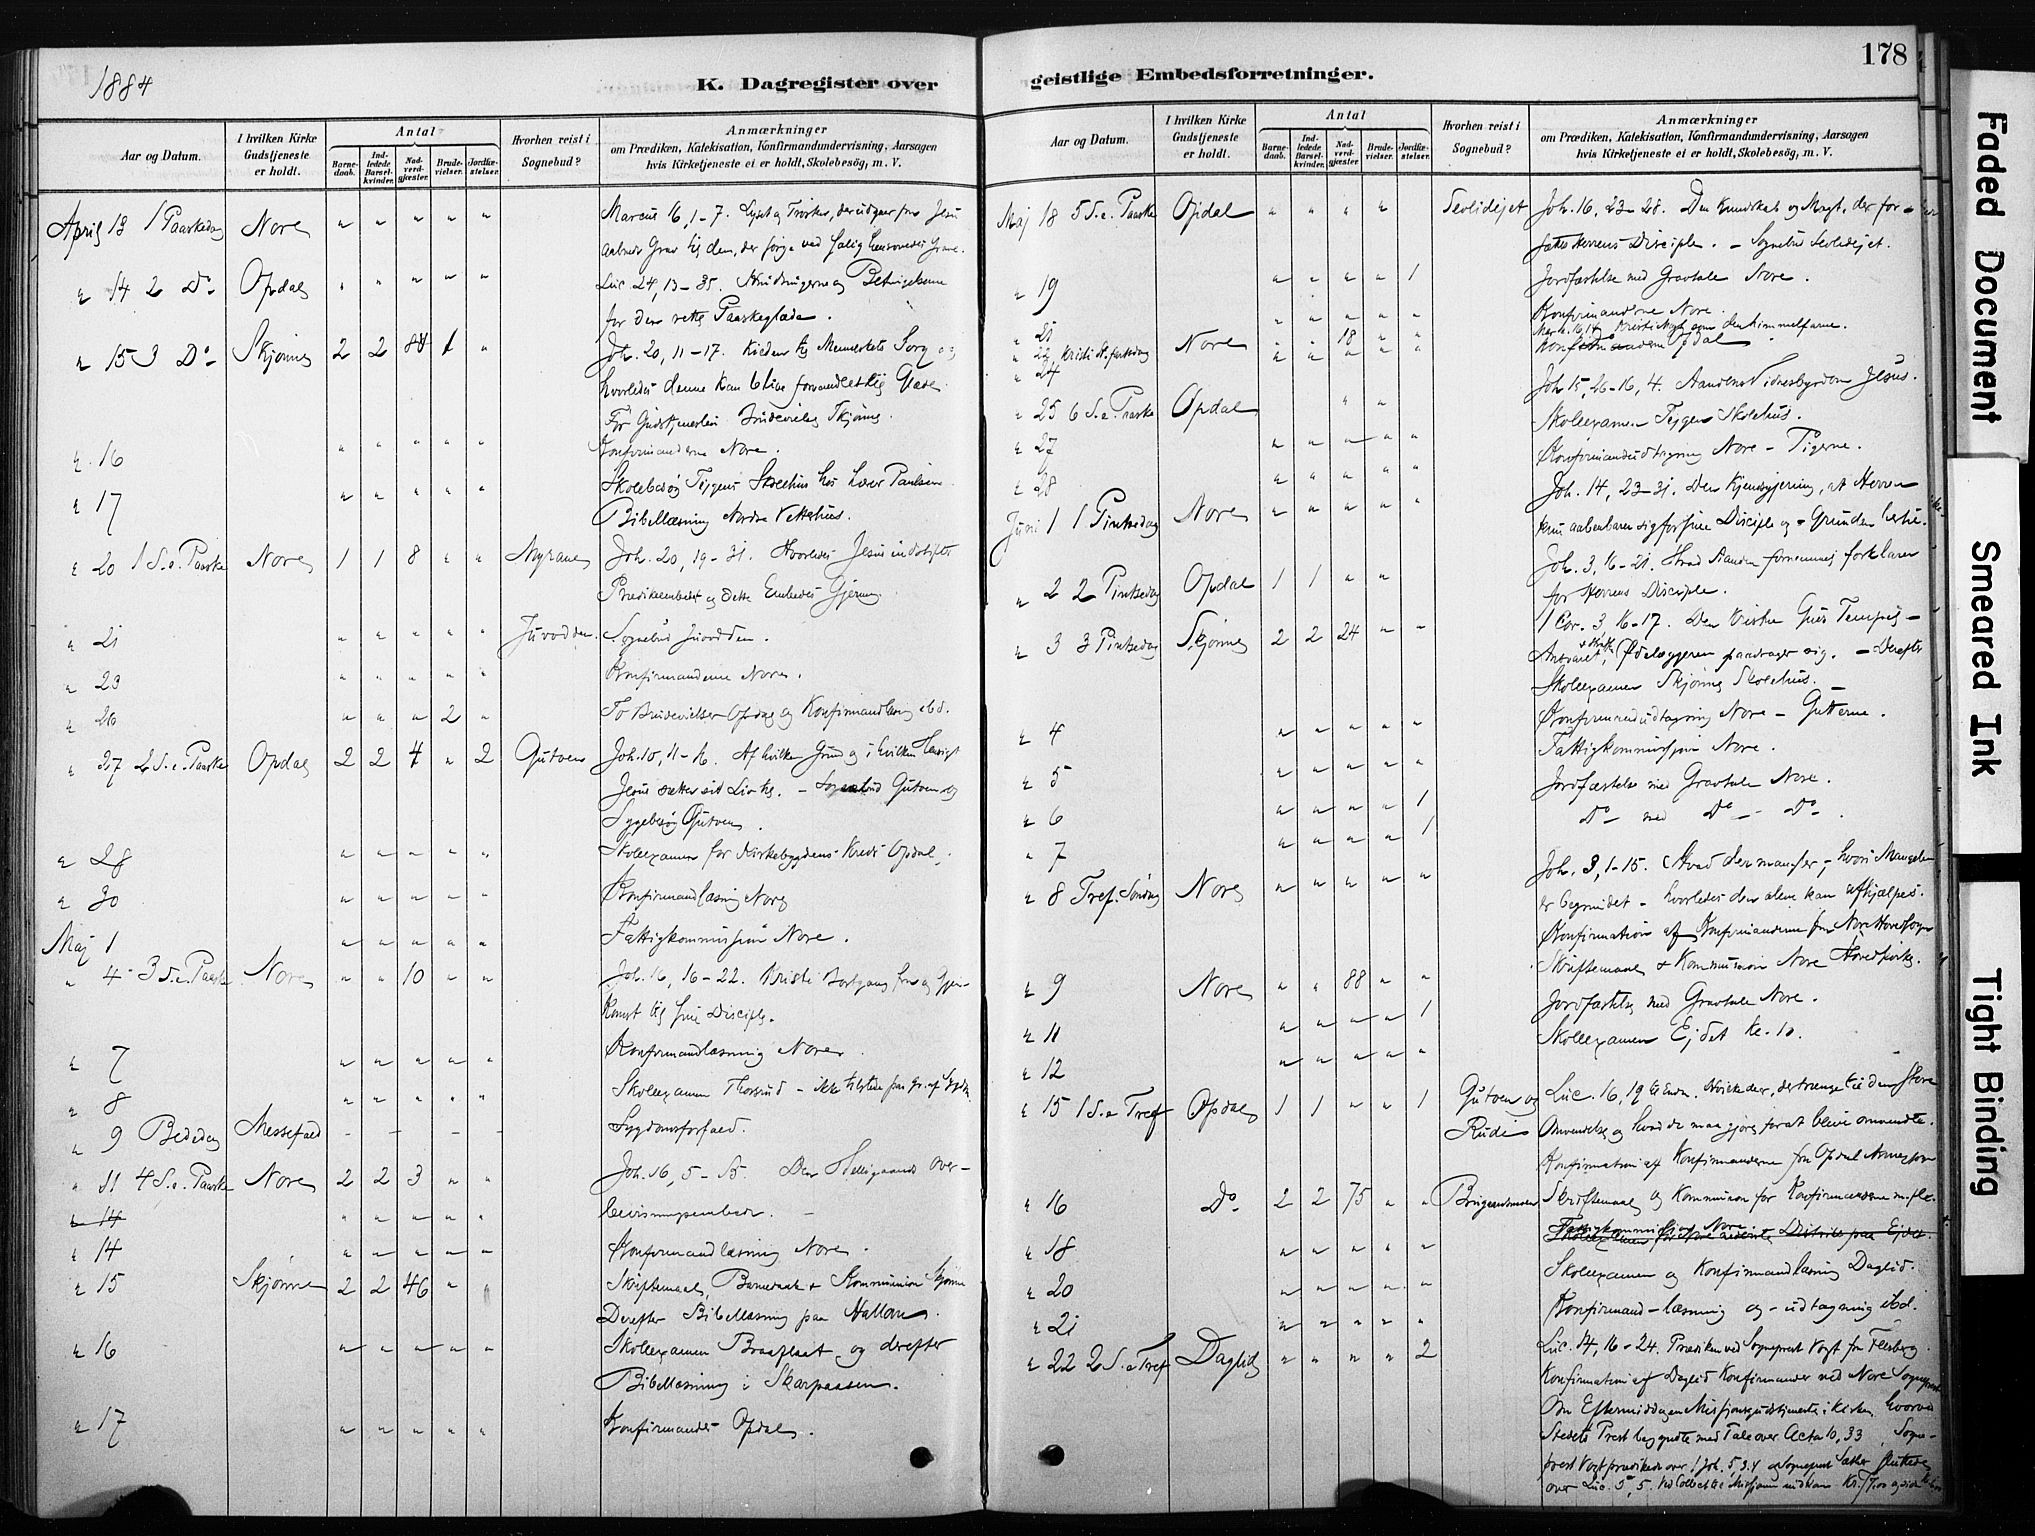 1884
K. Dagregister over
Aar og Datum.
I hvilken Kirke Gudstjeneste er holdt.
Antal
Barnedaab.
Indledede Barselkvinder.
Nadverdgjæster.
Brudevielser.
Jordfæstelser.
Hvorhen reist i Sognebud?
Anmærkninger
om Prædiken, Katekisation, Konfirmandundervisning, Aarsagen
hvis Kirketjeneste ei er holdt, Skolebesøg, m. V.
April 13 1 Paaskedag Nore " " " " " Marcus 16, 1-7. Lyset og Trøsten, der udgaar fra Jesu
aabnede Grav til den, der sørge ved salig hensovedes Grave.
" 14 2 Do Opdal " " " " " Luc. 24, 13-35. Hindringerne og Betingelserne
for den rette Paaskeglæde.
" 15 3 Do Skjønne 2 2 84 1 " Joh. 20, 11-17. Kilden til Menneskets Sorg og
hvorledes denne kan blive forvandlet til Glæde.
Før Gudstjenesten Brudevielse Skjønne.
" 16 " " " " " Konfirmanderne Nore.
" 17 " " " " " Skolebesøg Teigens Skolehus hos Lærer Paulsen.
Bibellæsning Nordre Vettehus.
" 20 1 S. e. Paaske Nore 1 1 8 " " Myrane Joh. 20, 19-31. Hvorledes Jesus indstifter
Prædikeembedet og dette Embedes Gjerning.
" 21 " " " " " Juvodden. Sognebud Juvodden.
" 23 " " " " " Konfirmanderne Nore.
" 26 " " " 2 " To Brudevielser Opdal og Konfirmandlæsning ibd.
" 27 2 S. e. Paaske Opdal 2 2 4 " 2 Gutven Joh. 10, 11-16. Af hvilken Grund og i hvilken Hensigt
Jesus sætter sit Liv til. - Sognebud Gutven og
Sygebesøg Gutven.
" 28 " " " " " Skoleexamen for Kirkebygdens Kreds Opdal.
" 30 " " " " " Konfirmandlæsning Nore
Maj 1 " " " " " Fattigkommission Nore.
" 4 3 S. e. Paaske Nore " " 10 " " Joh. 16, 16-22. Kristi Bortgang fra og Gjen-
komst til sine Disciple.
" 7 " " " " " Konfirmandlæsning Nore.
" 8 " " " " " Skoleexamen Thorsrud - ikke tilstede paa Gr. af Sygdom
" 9 Bededag Messefald - - - - Sygdomsforfald.
" 11 4 S. e. Paaske Nore 2 2 3 " " Joh. 16, 5-15. Den Helligaands Over-
bevisningsembede.
" 14 " " " " "
" 14 " " " " " Konfirmandlæsning Nore.
" 15 Skjønne 2 2 46 " " Skriftemaal, Barnedaab & Kommunion Skjønne
Derefter Bibellæsning paa Halland.
" 16 " " " " " Skoleexamen Braaflaat og derefter
Bibellæsning i Skarpaasen.
" 17 " " " " " Konfirmander Opdal.
geistlige Embedsforretninger.
178
Aar og Datum.
I hvilken Kirke Gudstjeneste er holdt.
Antal
Barnedaab.
Indledede Barselkvinder.
Nadverdgjæster.
Brudevielser.
Jordfæstelser.
Hvorhen reist i Sognebud?
Anmærkninger
om Prædiken, Katekisation, Konfirmandundervisning, Aarsagen
hvis Kirketjeneste ei er holdt, Skolebesøg, m. V.
Maj 18 5 S. e. Paaske Opdal " " " " Sevlidejet Joh. 16, 23-28. Den Kundskab og Magt, der for-
fattes Herrens Disciple. - Sognebud Sevlidejet.
" 19 " " " " 1 Jordfæstelse med Gravtale Nore.
" 21 " " " " " Konfirmanderne Nore.
" 22 Kristi H.fartsdag Nore " " 18 " " Marc. 16, 14 Kristi den himmelfarne.
" 24 " " " " Konfirmanderne Opdal
" 25 6 S. e. Paaske Opdal " " Joh. 15, 26-16, 4. Aandens Vidnesbyrd om Jesus.
" 27 " " " " " Skoleexamen Teigen Skolehus.
" 28 " " " " Konfirmandudtagning Nore - Pigerne.
Juni 1 1 Pintsedag Nore " " " " " Joh. 14, 23-31. Den Kjendsgjerning, at Herren
kun aabenbarer sig for sine Disciple og Grunden hertil.
" 2 2 Pintsedag Opdal 1 1 " " Joh. 3, 16-21. Hvad Aanden fornemmelig forklarer
for Herrens Disciple.
" 3 3 Pintsedag Skjønne 2 2 24 " " 1 Cor. 3, 16-17. Den kristne Guds Tempel -
Ansvaret, Ødelæggeren paadrager sig. - Derefter
Skoleexamen Skjønne Skolehus.
" 4 " " " " " Konfirmandudtagning Nore - Gutterne.
" 5 " " " " " Fattigkommission Nore.
" 6 " " " " 1 Jordfæstelse med Gravtale Nore.
" 7 " " " " 1 Do med Do - Do.
" 8 Tref. Søndag Nore " " " " " Joh. 3, 1-15. Hvad der mangler, - hvori Mangelen
er begrundet - hvorledes den alene kan afhjælpes.
Konfirmation af Konfirmanderne fra Nore Hovedsogn
" 9 Nore " " 88 " " Skriftemaal & Kommunion Nore Hovedkirke.
" 11 " " " " 1 Jordfæstelse med Gravtale Nore.
" 12 " " " " " Skoleexamen Ejdet Kl. 10.
" 15 1 S. e. Tref Opdal 1 1 " " 1 Gutven og Rudi Luc. 16, 19 til Enden. der, der trænge til den store
Omvendelse og hvad de maa gjøre for at blive omvendte.
Konfirmation af Konfirmanderne fra Opdal Annexsogn
" 16 Do 2 2 75 " " Skriftemaal og Kommunion for Konfirmanderne m. fle.
" 18 " " " " " Fattigkommission Nore
Skoleexamen for Nore nederste Distrikt paa Ejdet.
" 20 " " " " " Skoleexamen og Konfirmandlæsning Daglid.
" 21 " " " " " Konfirmand-læsning og -udtagning ibd.
" 22 2 S. e. Tref Daglid " " " " 2 Luc. 14, 16-24. Prædiken ved Sogneprest Vogt fra Flesberg.
Konfirmation af Daglid Konfirmander ved Nore Sogneprest
Om Eftermiddagen Missionsgudstjeneste i Kirken hvorved
Stedets Prest begyndte med Tale over Acta 10, 33, Sogne-
prest Vogt prædikede over 1 Joh. 5, 3.4 og Sogneprest Sæther sluttede
over Luc. 5, 5. Ved Collect til Missionen indkom Kr.
Faded Document
Smeared Ink
Tight Binding